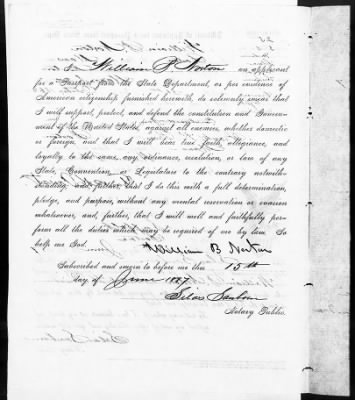 I William B Norton an applicant
for a Passport from the State Department, as per evidence of
American citizenship furnished herewith, do solemnly swear that
I will support, protect, and defend the constitution and Govern-
ment of the United States, against all enemies, whether domestic
or foreign, and that I will bear true faith, allegiance, and
loyalty to the same, any ordinance, resolution, or law of any
State, Convention, or Legislature to the contrary notwith-
standing, and further, that I do this with a full determination,
pledge, and purpose, without any mental reservation or evasion
whatsoever, and, further, that I will well and faithfully per-
form all the duties which may be required of me by law. So
help me God.
William B Norton
Subscribed and sworn to before me this 15th
day of June 1887
Silas Sanborn
Notary Public.